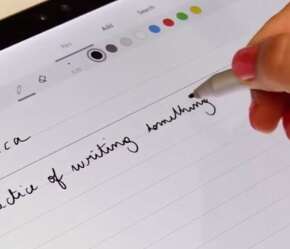 Pen Add Search
ca
ctice of writing something